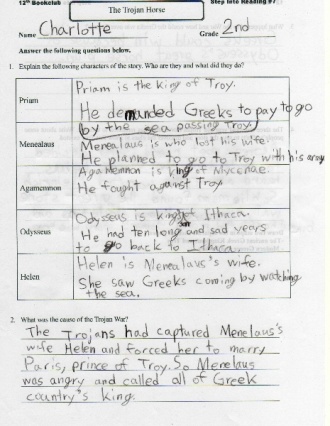 12th Bookclub
The Trojan Horse
Step into Reading
Name Charlotte
Grade 2nd
Answer the following questions below.
1. Explain the following characters of the story. Who are they and what did they do?
Priam
Priam is the king of Troy.
He demanded Greeks to pay to go
by the sea passing Troy.
Menealaus
Menealaus is who lost his wife.
He planned to go to Troy with his army
Agamemnon
Agamemnon is king of Mycenae.
He fought against Troy
Odysseus
Odysseus is king of Ithaca.
He had ten long and sad years
to go back to Ithaca.
Helen
Helen is Menealaus's wife.
She saw Greeks coming by watching
the sea.
2. What was the cause of the Trojan War?
The Trojans had captured Menelaus's
wife Helen and forced her to marry
Paris, prince of Troy. So Menelaus
was angry and called all of Greek
country's king.